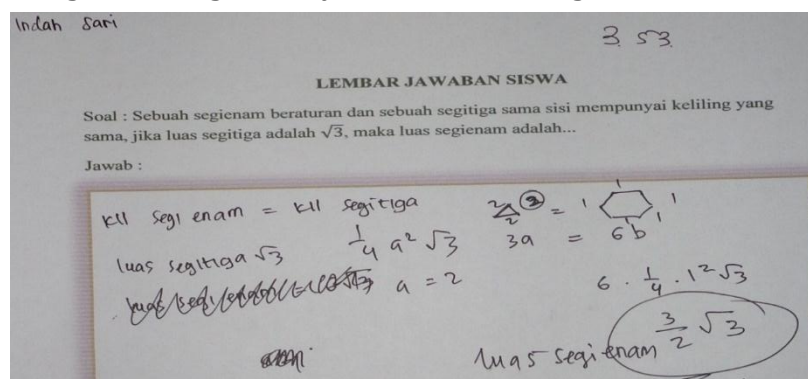 Indah Sari
3 53
LEMBAR JAWABAN SISWA
Soal : Sebuah segienam beraturan dan sebuah segitiga sama sisi mempunyai keliling yang
sama, jika luas segitiga adalah √3, maka luas segienam adalah...
Jawab :
kll segi enam = kll segitiga
2 2 2 = 1 1 1 1
luas segitiga √3
1/4 a² √3
3a = 6b
a = 2
6 . 1/4 . 1² √3
luas segi enam 3/2 √3